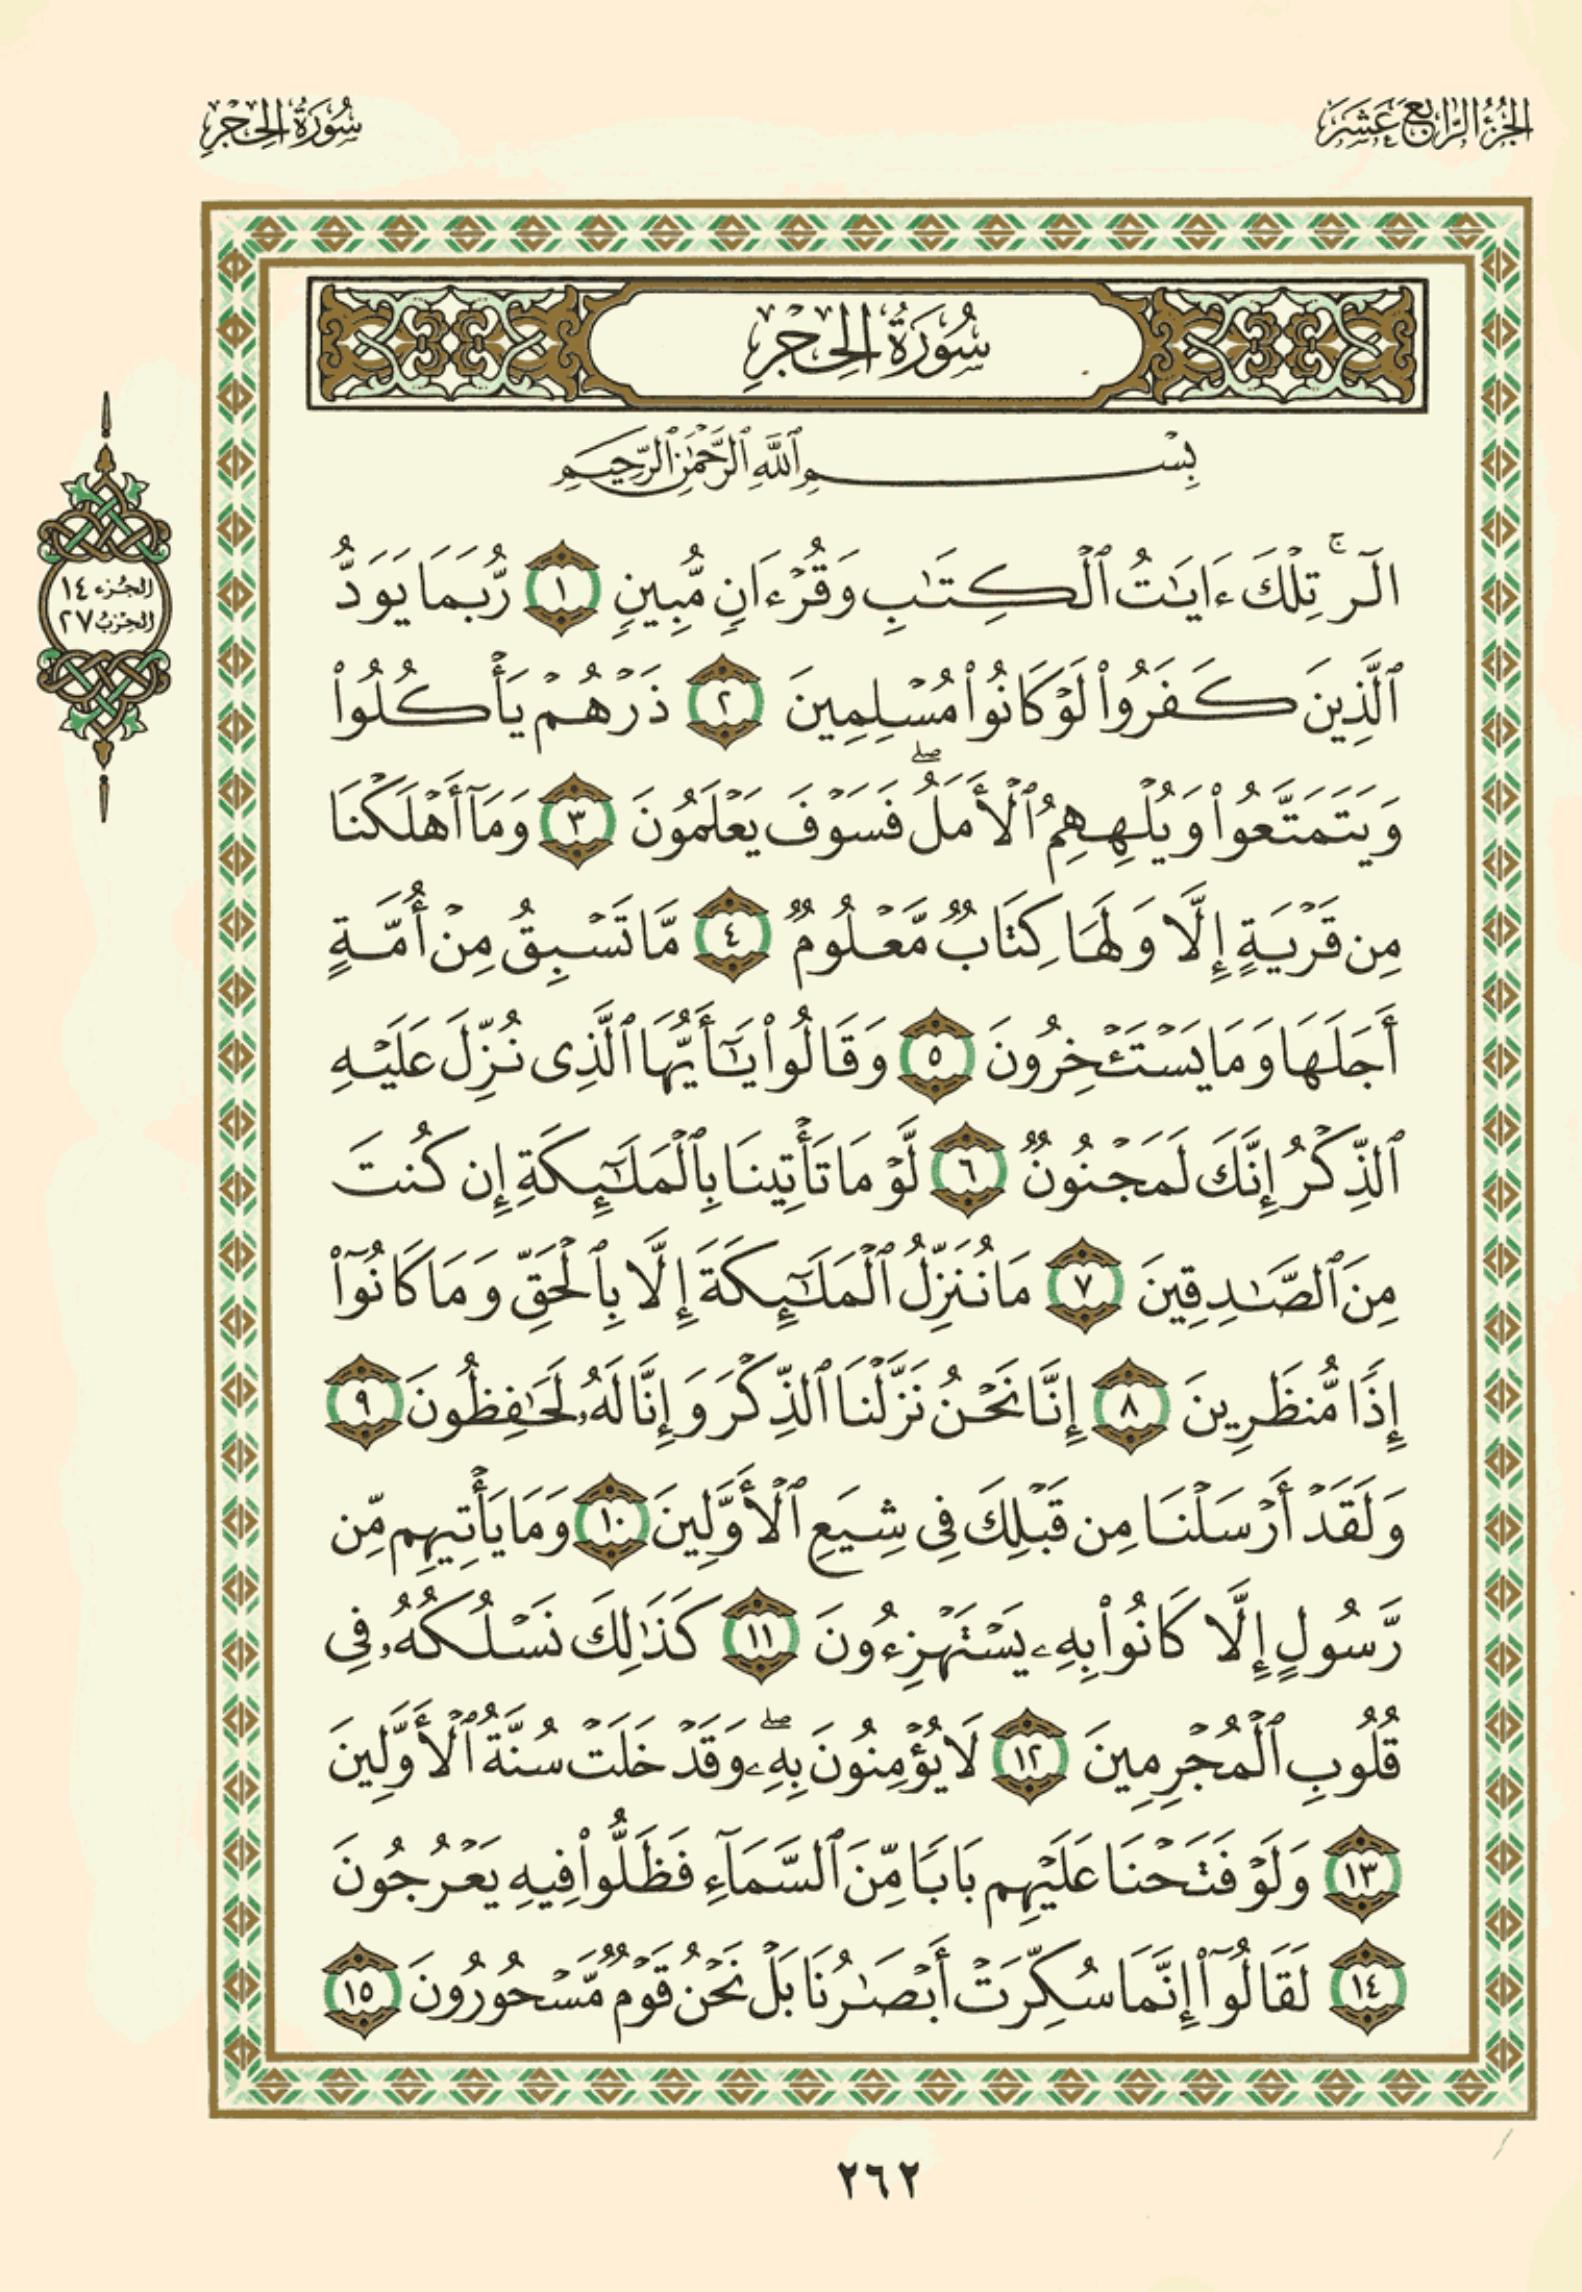 الجُزْءُ الرَّابِعَ عَشَرَ
سُورَةُ الحِجْرِ
سُورَةُ الحِجْرِ
بِسْمِ ٱللَّهِ ٱلرَّحْمَٰنِ ٱلرَّحِيمِ
الٓرۚ تِلْكَ ءَايَٰتُ ٱلْكِتَٰبِ وَقُرْءَانٍ مُّبِينٍ ١ رُّبَمَا يَوَدُّ
ٱلَّذِينَ كَفَرُوا۟ لَوْ كَانُوا۟ مُسْلِمِينَ ٢ ذَرْهُمْ يَأْكُلُوا۟
وَيَتَمَتَّعُوا۟ وَيُلْهِهِمُ ٱلْأَمَلُۖ فَسَوْفَ يَعْلَمُونَ ٣ وَمَآ أَهْلَكْنَا
مِن قَرْيَةٍ إِلَّا وَلَهَا كِتَابٌ مَّعْلُومٌ ٤ مَّا تَسْبِقُ مِنْ أُمَّةٍ
أَجَلَهَا وَمَا يَسْتَـْٔخِرُونَ ٥ وَقَالُوا۟ يَٰٓأَيُّهَا ٱلَّذِى نُزِّلَ عَلَيْهِ
ٱلذِّكْرُ إِنَّكَ لَمَجْنُونٌ ٦ لَّوْ مَا تَأْتِينَا بِٱلْمَلَٰٓئِكَةِ إِن كُنتَ
مِنَ ٱلصَّٰدِقِينَ ٧ مَا نُنَزِّلُ ٱلْمَلَٰٓئِكَةَ إِلَّا بِٱلْحَقِّ وَمَا كَانُوٓا۟
إِذًا مُّنظَرِينَ ٨ إِنَّا نَحْنُ نَزَّلْنَا ٱلذِّكْرَ وَإِنَّا لَهُۥ لَحَٰفِظُونَ ٩
وَلَقَدْ أَرْسَلْنَا مِن قَبْلِكَ فِى شِيَعِ ٱلْأَوَّلِينَ ١٠ وَمَا يَأْتِيهِم مِّن
رَّسُولٍ إِلَّا كَانُوا۟ بِهِۦ يَسْتَهْزِءُونَ ١١ كَذَٰلِكَ نَسْلُكُهُۥ فِى
قُلُوبِ ٱلْمُجْرِمِينَ ١٢ لَا يُؤْمِنُونَ بِهِۦۖ وَقَدْ خَلَتْ سُنَّةُ ٱلْأَوَّلِينَ
١٣ وَلَوْ فَتَحْنَا عَلَيْهِم بَابًا مِّنَ ٱلسَّمَآءِ فَظَلُّوا۟ فِيهِ يَعْرُجُونَ
١٤ لَقَالُوٓا۟ إِنَّمَا سُكِّرَتْ أَبْصَٰرُنَا بَلْ نَحْنُ قَوْمٌ مَّسْحُورُونَ ١٥
الجُزء ١٤
الحِزبُ ٢٧
٢٦٢